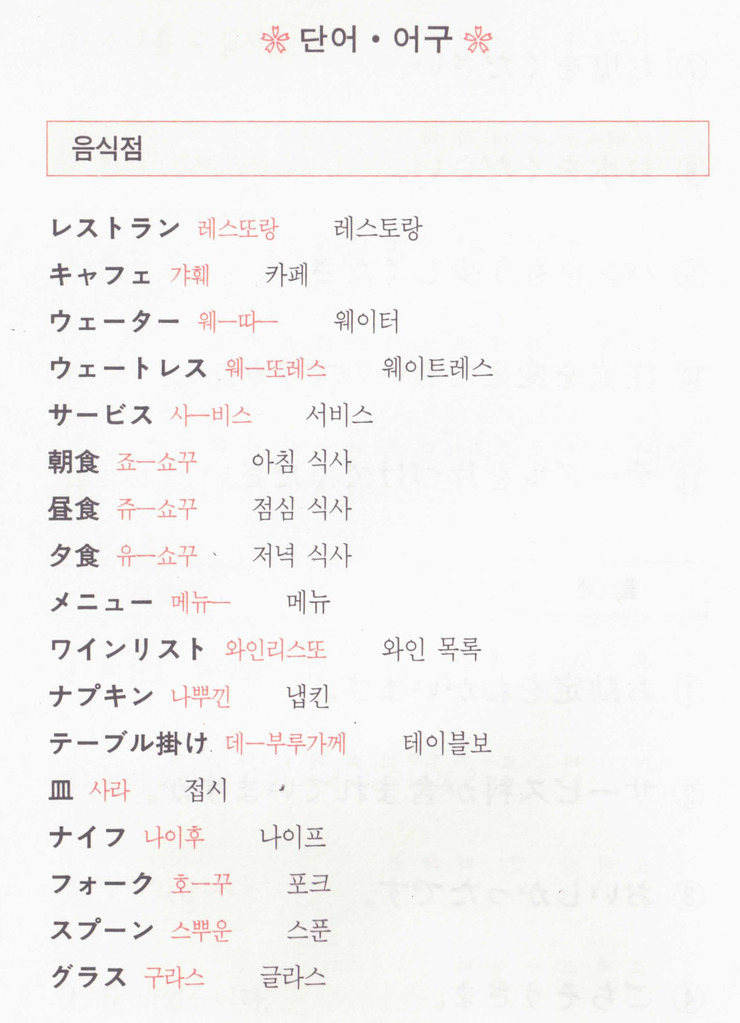 단어・어구
음식점
レストラン 레스또랑 레스토랑
キャフェ 갸훼 카페
ウェーター 웨ー따ー 웨이터
ウェートレス 웨ー또레스 웨이트레스
サービス 사ー비스 서비스
朝食 죠ー쇼꾸 아침 식사
昼食 쥬ー쇼꾸 점심 식사
夕食 유ー쇼꾸 저녁 식사
メニュー 메뉴ー 메뉴
ワインリスト 와인리스또 와인 목록
ナプキン 나뿌낀 냅킨
テーブル掛け 데ー부루가께 테이블보
皿 사라 접시
ナイフ 나이후 나이프
フォーク 호ー꾸 포크
スプーン 스뿌운 스푼
グラス 구라스 글라스